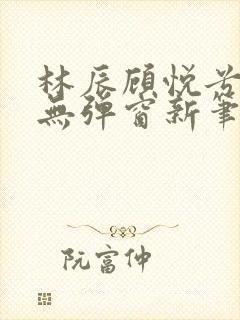 林辰顾悦兮
無彈窗新筆
阮富仲